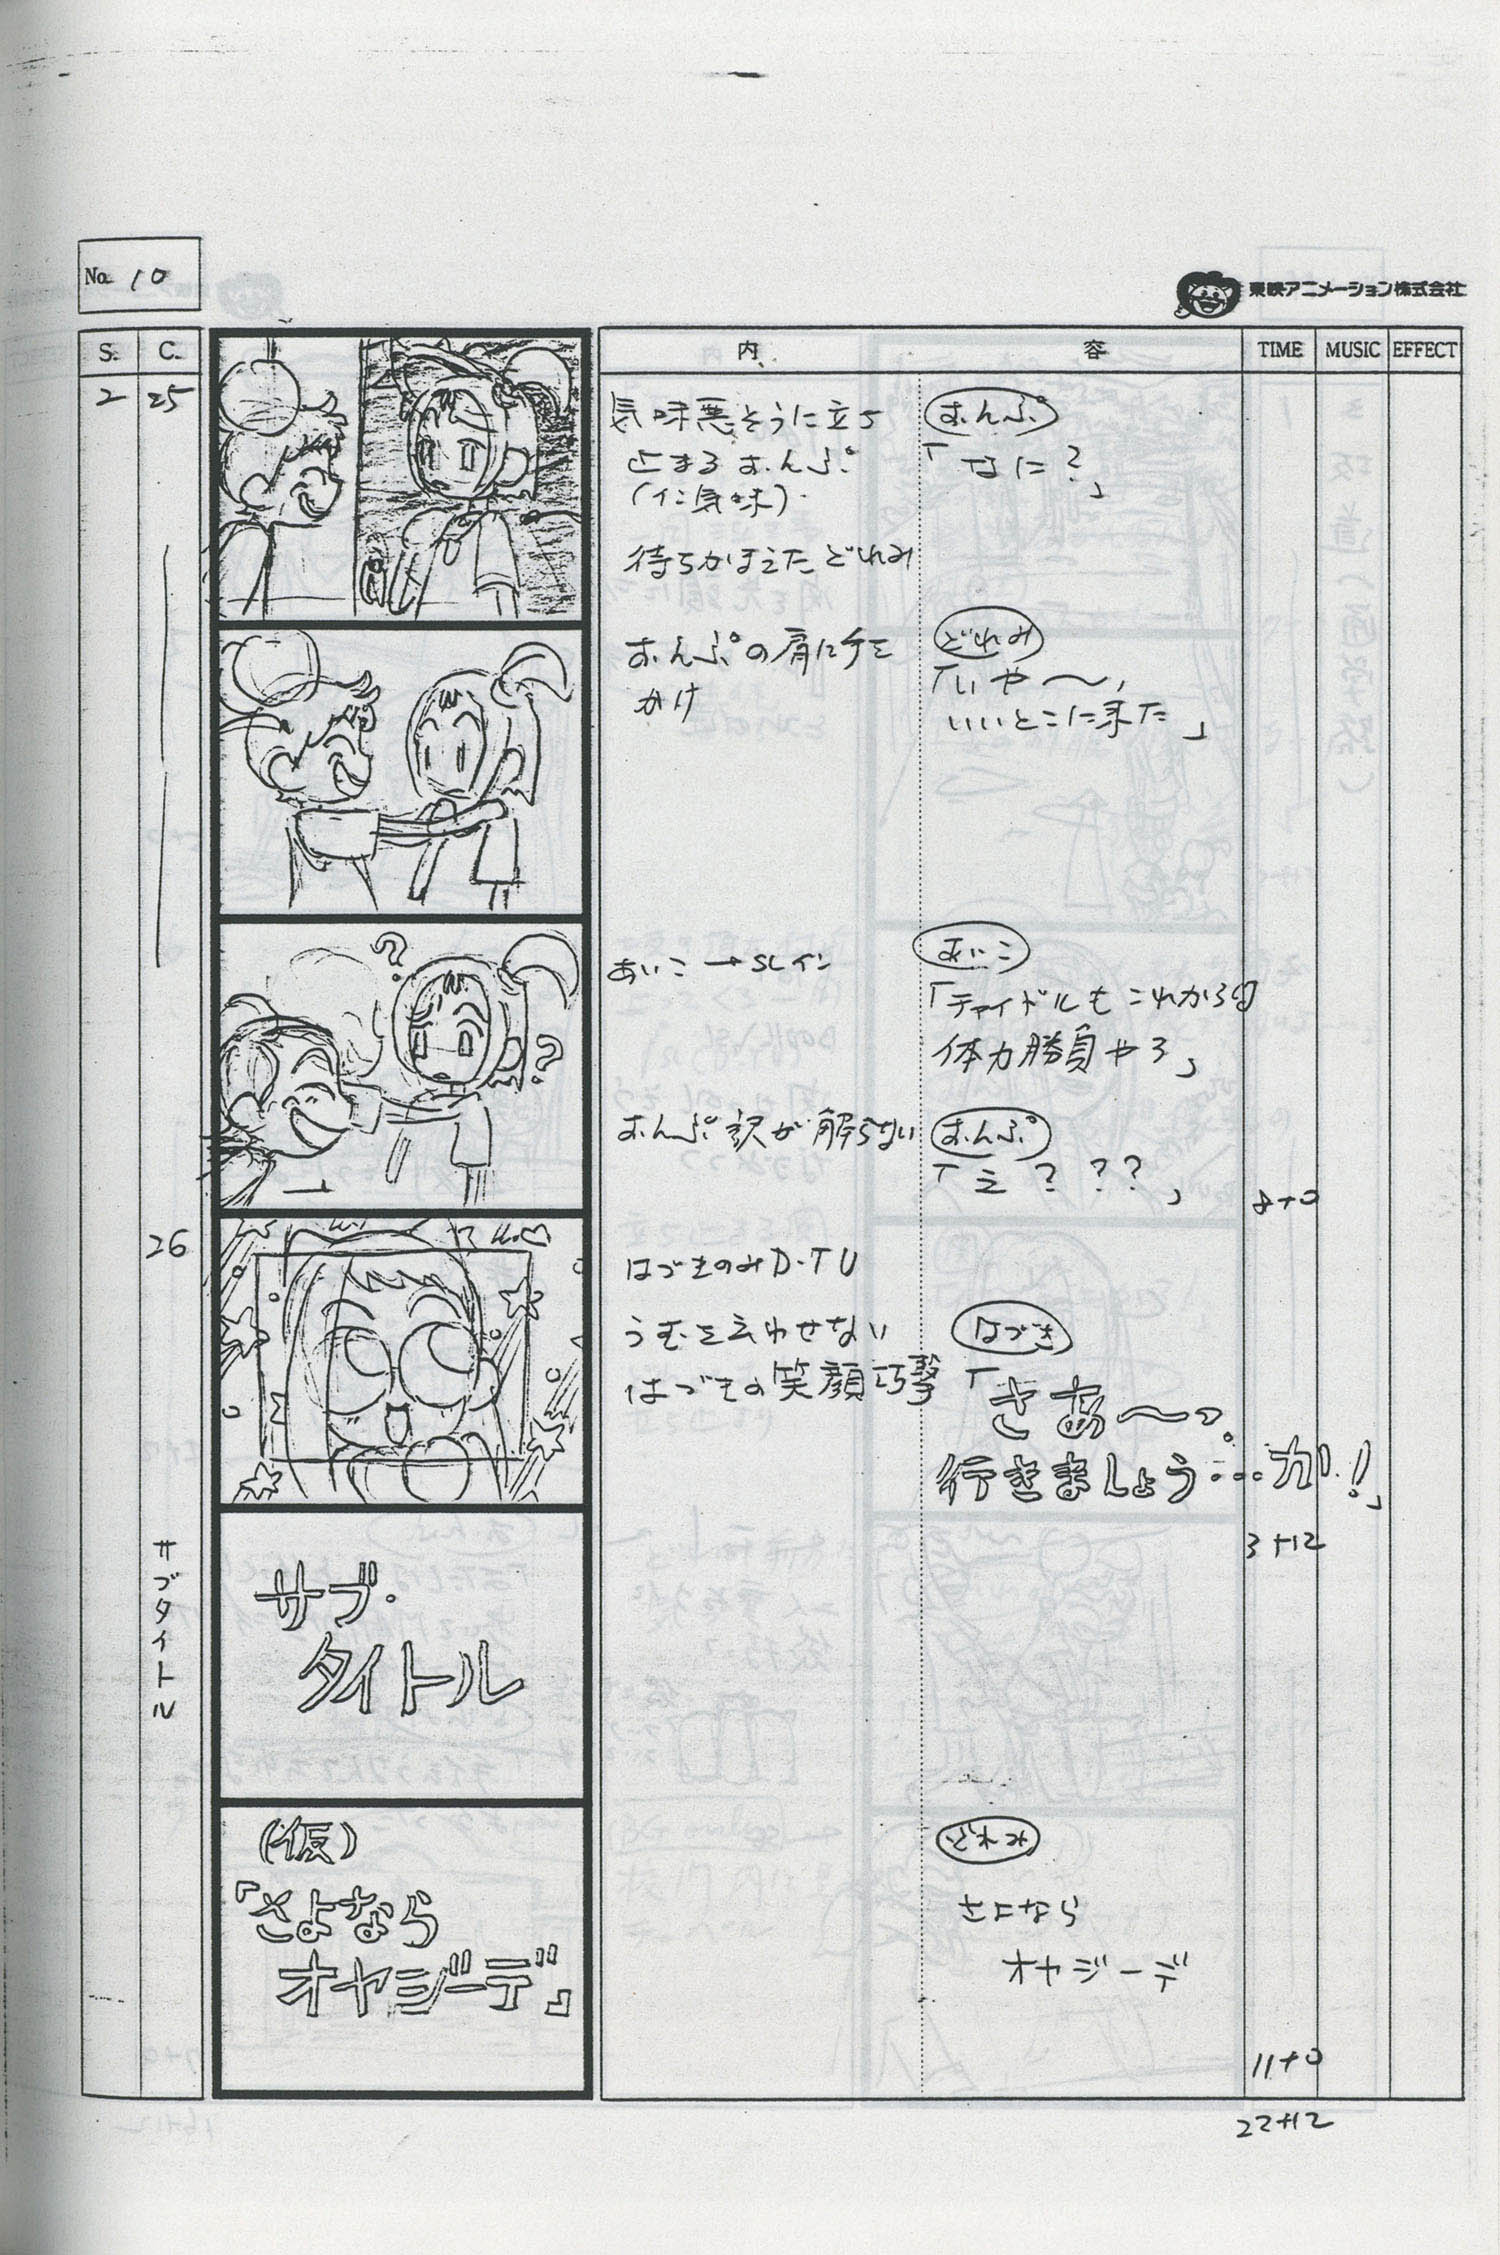 No. 10
東映アニメーション株式会社
S. C. 内 容 TIME MUSIC EFFECT
2 25
気味悪そうに立ち
止まるおんぷ
(イン気味).
待ちかまえたどれみ
おんぷ
「なに?」
おんぷの肩に手を
かけ
どれみ
「いや〜,
いいとこに来た」
?
?
あいこ→SLイン
あいこ
「チャイドルもこれからは
体力勝負やろ」
おんぷ訳が解らない
おんぷ
「え???」
8+0
26
はづきのみD・TU
うむを云わせない
はづきの笑顔巧撃
はづき
「さあ〜っ。
行きましょう…カ!」
3+12
サブタイトル
サブ・
タイトル
(仮)
「さよなら
オヤジーデ」
どれみ
さよなら
オヤジーデ
11+0
22+12